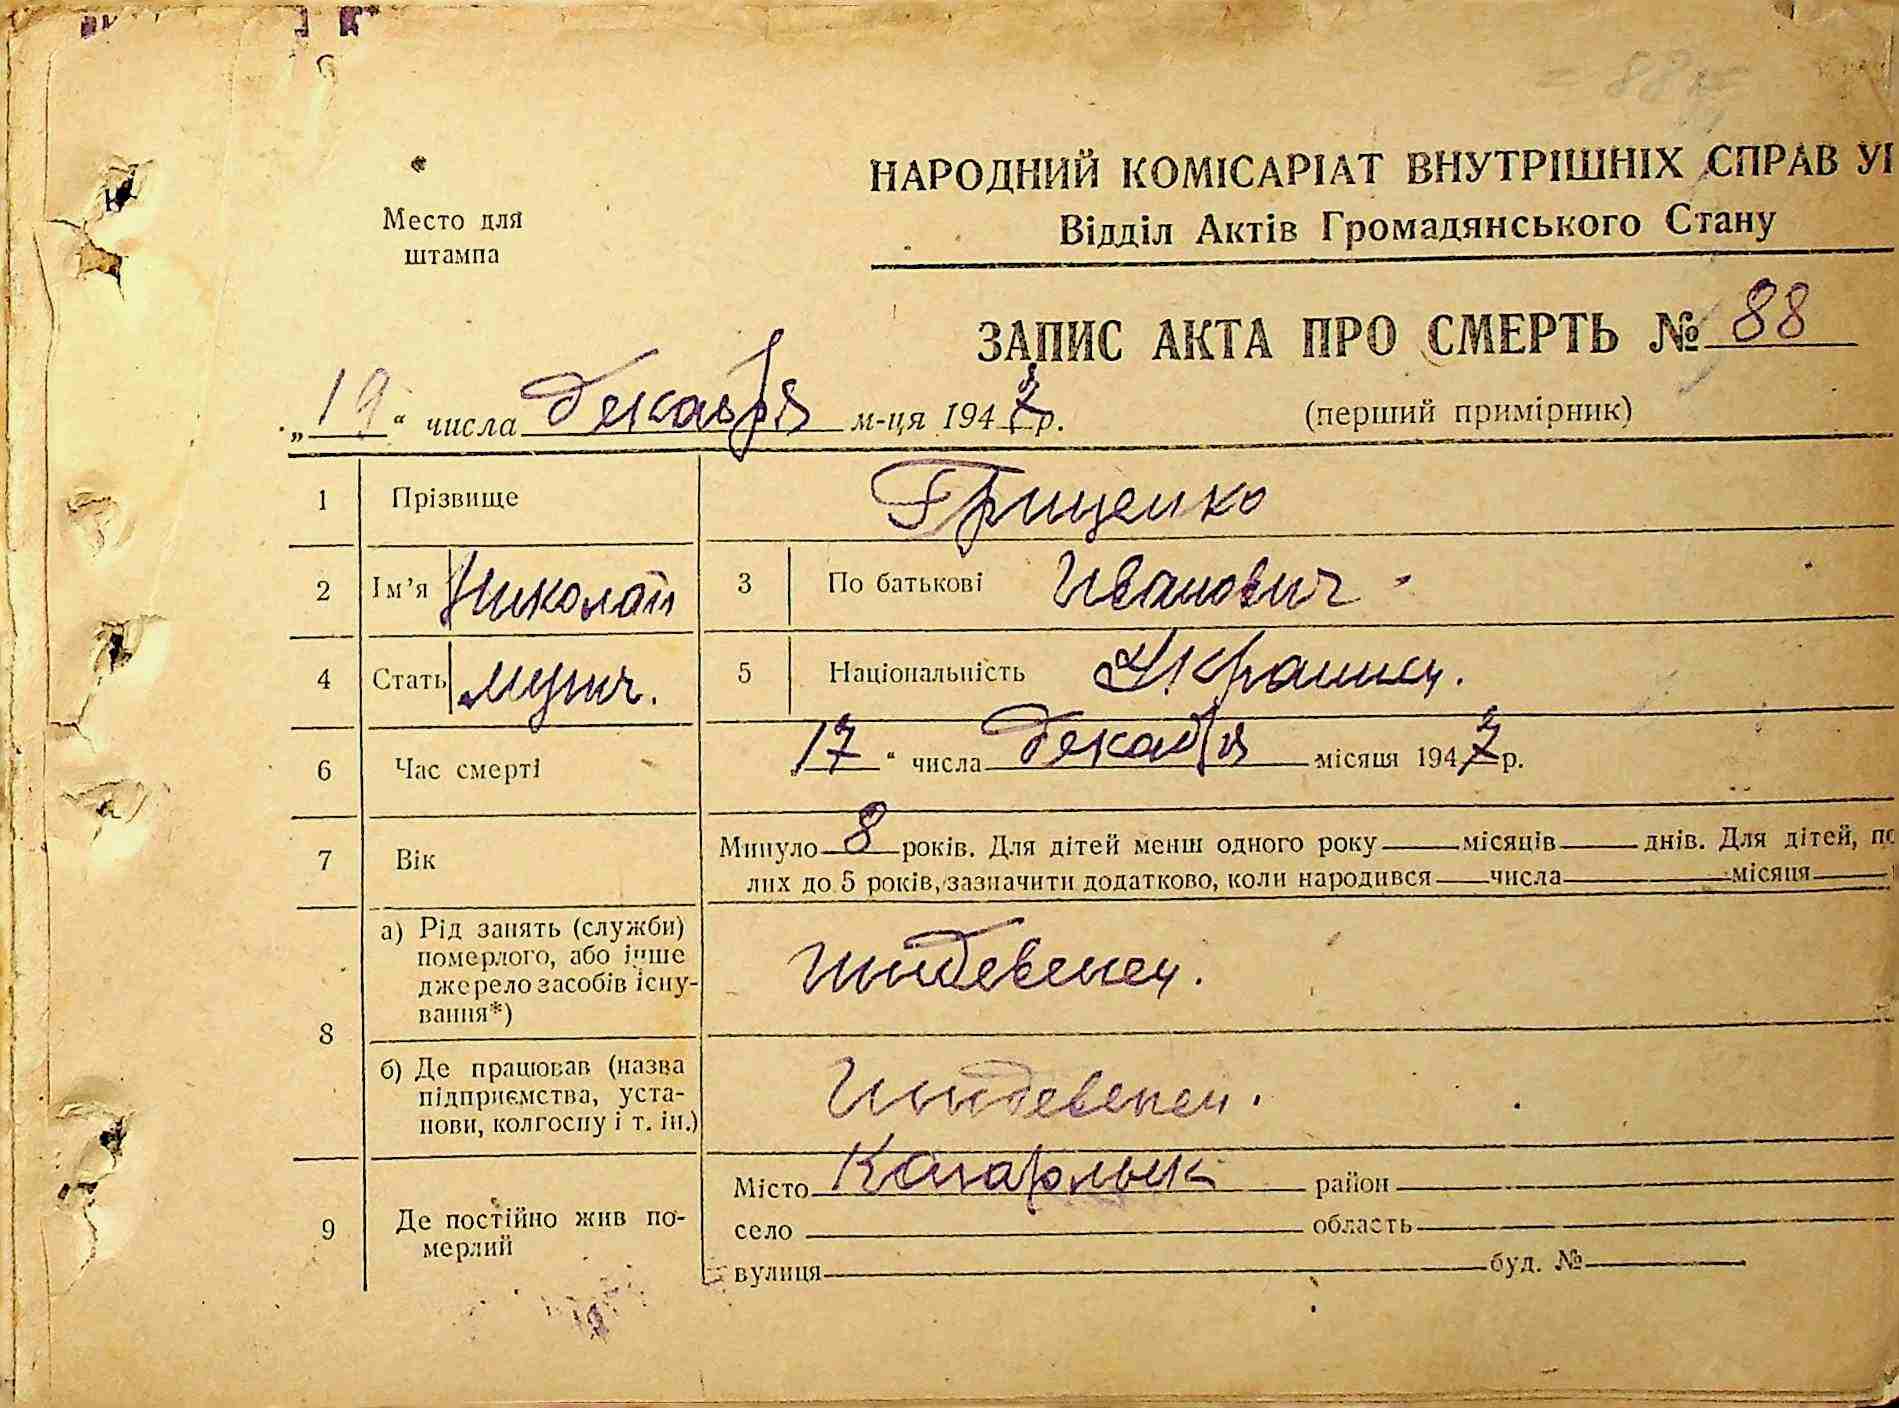 = 88 =
Место для
штампа
НАРОДНИЙ КОМІСАРІАТ ВНУТРІШНІХ СПРАВ УІ
Відділ Актів Громадянського Стану
ЗАПИС АКТА ПРО СМЕРТЬ № 88
„19“ числа декабря м-ця 1947 р.
(перший примірник)
1 Прізвище Гриценко
2 Ім’я Николай 3 По батькові Иванович
4 Стать мужч. 5 Національність Украинец.
6 Час смерті „17“ числа декабря місяця 1947 р.
7 Вік Минуло 8 років. Для дітей менш одного року місяців днів. Для дітей, по
лих до 5 років, зазначити додатково, коли народився числа місяця
8 а) Рід занять (служби)
померлого, або інше
джерело засобів існу-
вання*) Иждевенец.
б) Де працював (назва
підприємства, уста-
нови, колгоспу і т. ін.) Иждевенец.
9 Де постійно жив по-
мерлий
Місто Кагарлык район
село область
вулиця буд. №